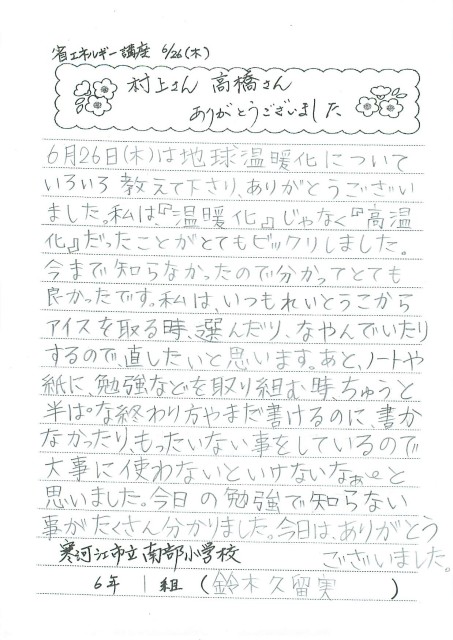 省エネルギー講座 6/26(木)
村上さん 高橋さん
ありがとうございました
6月26日(木)は地球温暖化について
いろいろ教えて下さり、ありがとうござい
ました。私は、『温暖化』じゃなく『高温
化』だったことがとてもビックリしました。
今まで知らなかったので分かってとても
良かったです。私は、いつもれいとうこから
アイスを取る時、選んだり、なやんでいたり
するので、直したいと思います。あと、ノートや
紙に、勉強などを取り組む時、ちゅうと
半ぱな終わり方やまだ書けるのに、書か
なかったり、もったいない事をしているので
大事に使わないといけないなぁ〜と
思いました。今日の勉強で知らない
事がたくさん分かりました。今日は、ありがとう
ございました。
寒河江市立南部小学校
6年 1組 (鈴木久留実)